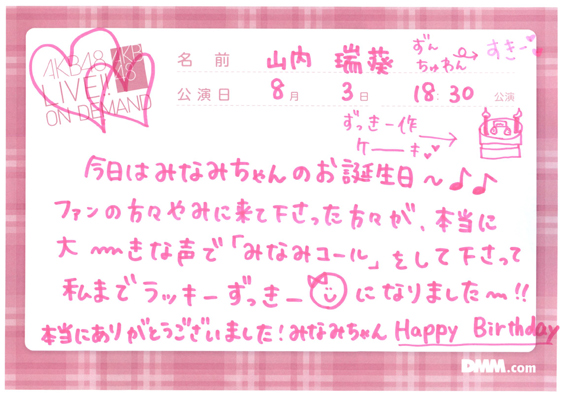 AKB48
LIVE!!
ON DEMAND
名前 山内 瑞葵 ずん
ちゅわん すきー
公演日 8月 3日 18:30 公演
ずっきー作
ケーキ
今日はみなみちゃんのお誕生日〜♪♪
ファンの方々やみに来て下さった方々が、本当に
大〜きな声で「みなみコール」をして下さって
私までラッキーずっきーになりました〜!!
本当にありがとうございました!みなみちゃん Happy Birthday
DMM.com